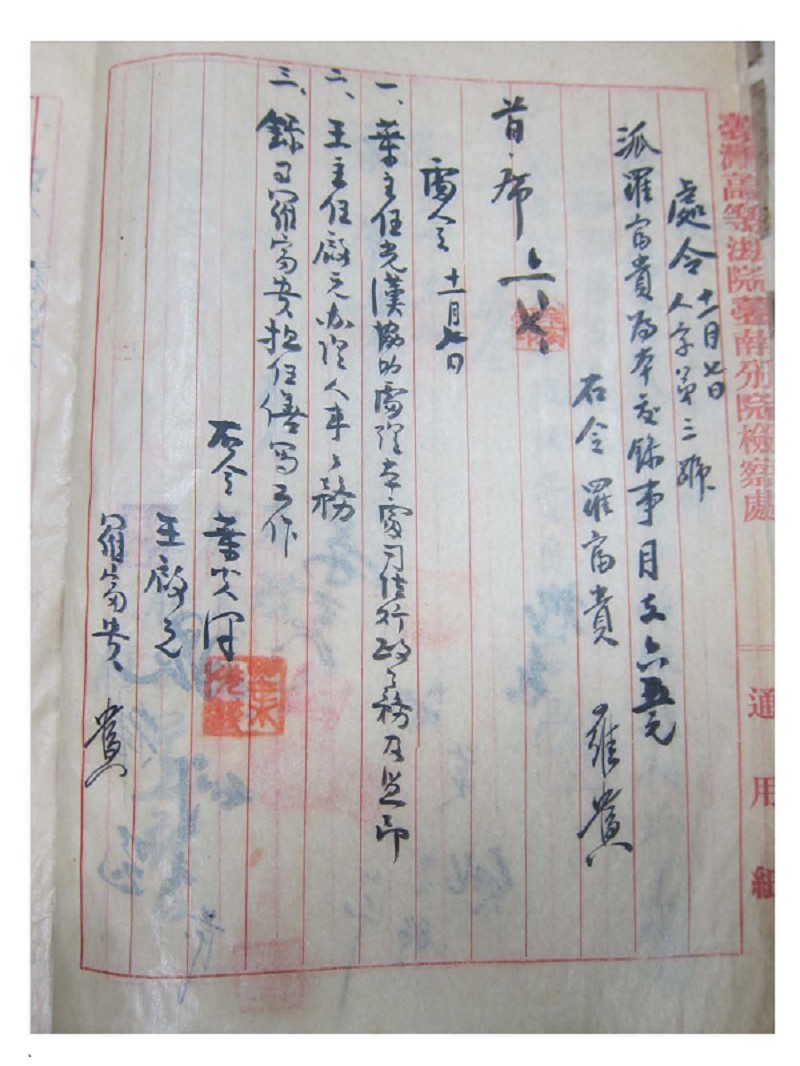 臺灣高等法院臺南分院檢察處 通用紙
處令 十一月七日 人字第三號
派羅富貴為本處錄事月支六五元
右令羅富貴
首席
處令 十一月七日
一、葉主任光漢協助處理本處司法行政事務及監印
二、王主任啟元办理人事事務
三、錄事羅富貴担任繕寫工作
右令葉光漢
王啟元
羅富貴